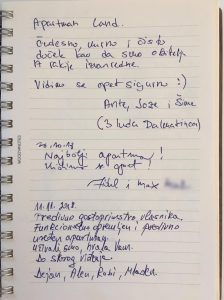 Apartman Land.
Čudesno, mirno i čisto
doček kao da smo obitelj
A rakije izvanredne.
Vidimo se opet sigurno :)
Ante, Joze i Šime
(3 luda Dalmatinca)
Najbolji apartman!
Vidimo se opet!
i max
11.11.2018.
Predivno gostoprimstvo vlasnika.
Funkcionalno opremljen i predivno
uređen apartman.
Uživali smo, hvala Vam.
Do skorog viđenja
Dejan, Alen, Robi, Mladen.